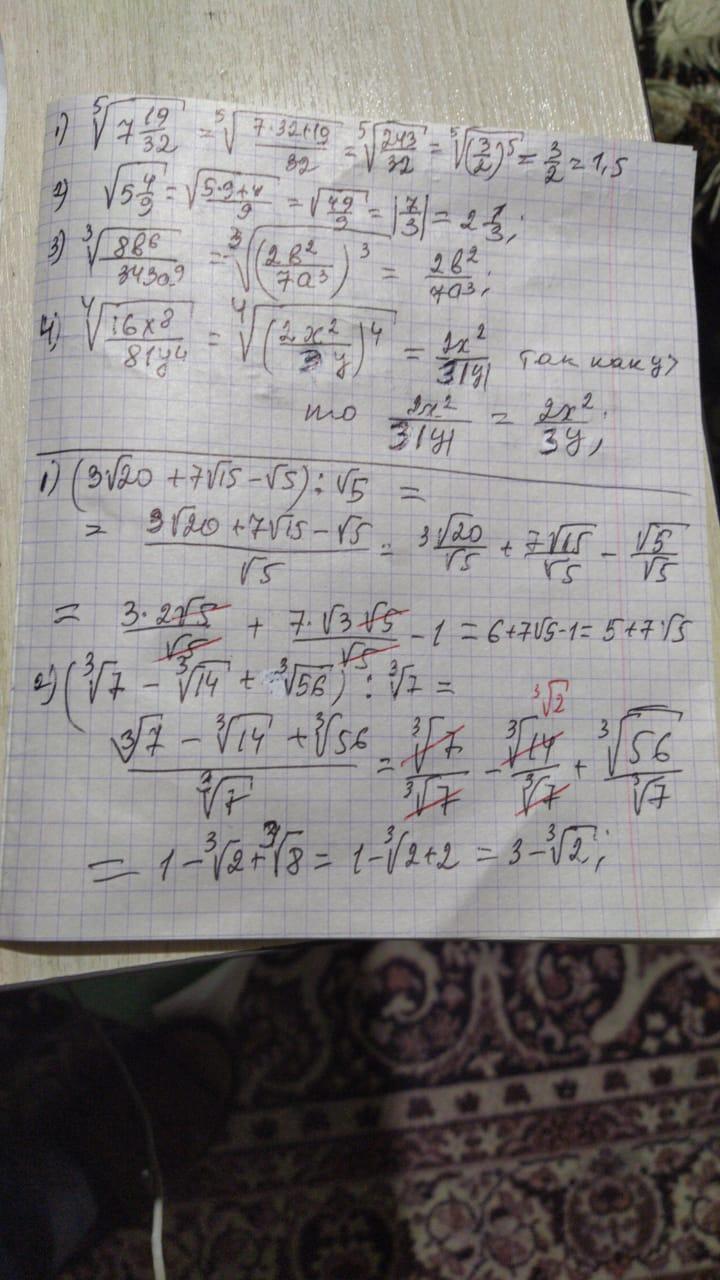 1) ⁵√(7 19/32) = ⁵√((7·32+19)/32) = ⁵√(243/32) = ⁵√((3/2)⁵) = 3/2 = 1,5
2) √(5 4/9) = √((5·9+4)/9) = √(49/9) = |7/3| = 2 1/3;
3) ³√(8b⁶/343a⁹) = ³√((2b²/7a³)³) = 2b²/7a³;
4) ⁴√(16x⁸/81y⁴) = ⁴√((2x²/3y)⁴) = 2x²/3|y| так как y>
то 2x²/3|y| = 2x²/3y;
1) (3√20 + 7√15 - √5) : √5 =
= (3√20 + 7√15 - √5)/√5 = 3√20/√5 + 7√15/√5 - √5/√5
= 3·2√5/√5 + 7·√3√5/√5 - 1 = 6+7√5-1 = 5+7√5
2) (³√7 - ³√14 + ³√56) : ³√7 =
³√2
(³√7 - ³√14 + ³√56)/³√7 = ³√7/³√7 - ³√14/³√7 + ³√56/³√7
= 1-³√2+³√8 = 1-³√2+2 = 3-³√2;